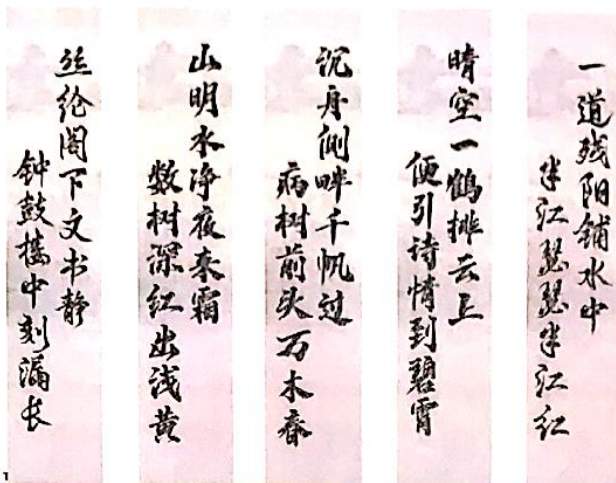 一道残阳铺水中
半江瑟瑟半江红
晴空一鹤排云上
便引诗情到碧霄
沉舟侧畔千帆过
病树前头万木春
山明水净夜来霜
数树深红出浅黄
丝纶阁下文书静
钟鼓楼中刻漏长